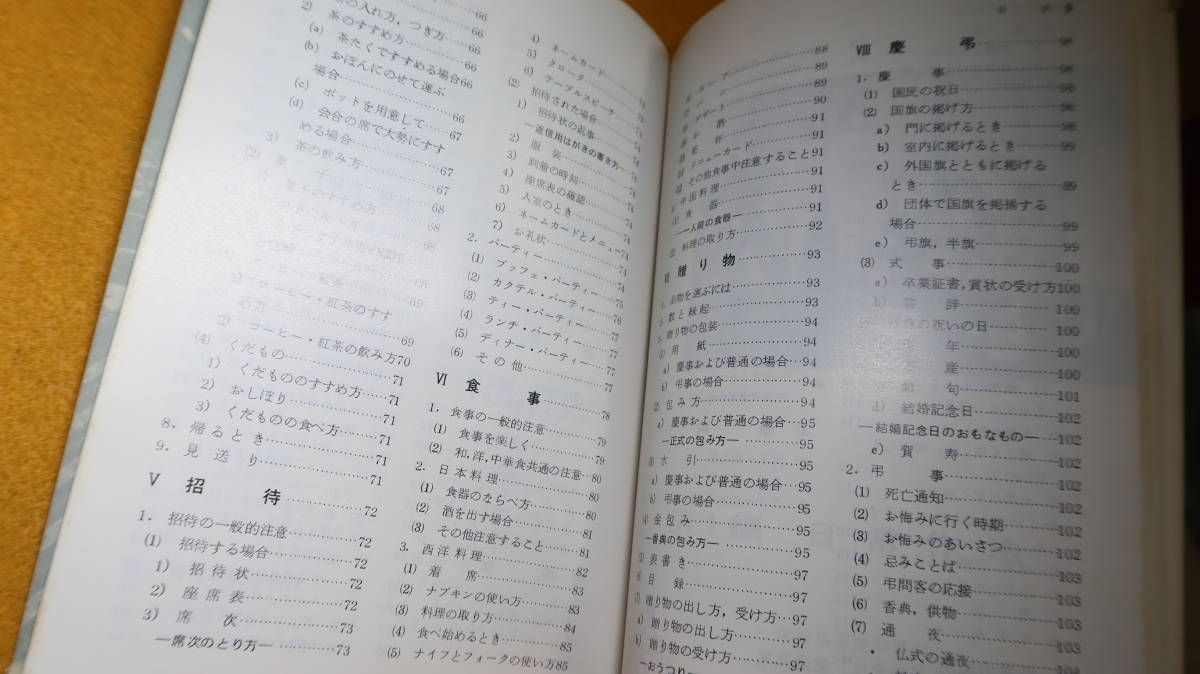 茶の入れ方，つき方……66
2) 茶のすすめ方……66
(a) 茶たくですすめる場合66
(b) おぼんにのせて運ぶ
場合……66
(c) ポットを用意して……67
(d) 会合の席で大勢にすす
める場合……67
3) 茶の飲み方……67
(2) 菓子……68
菓子のすすめ方……68
コーヒー・紅茶……69
コーヒー・紅茶のすす
め方……69
2) コーヒー・紅茶の飲み方70
(4) くだもの……71
1) くだもののすすめ方……71
2) おしぼり……71
3) くだものの食べ方……71
8. 帰るとき……71
9. 見送り……71
Ⅴ 招待……72
1. 招待の一般的注意……72
(1) 招待する場合……72
1) 招待状……72
2) 座席表……72
3) 席次……73
―席次のとり方―……73
4) ネームカード
5) クローク……73
6) テーブルスピーチ
(2) 招待された場合……74
1) 招待状の返事……74
―返信用はがきの書き方―……74
2) 服装……74
3) 到着の時刻……74
4) 座席表の確認……74
5) 入室のとき……74
6) ネームカードとメニュー74
7) お礼状……74
2. パーティー……74
(1) ブッフェ・パーティー……75
(2) カクテル・パーティー……76
(3) ティー・パーティー……77
(4) ランチ・パーティー……77
(5) ディナー・パーティー……77
(6) その他……77
Ⅵ 食事……78
1. 食事の一般的注意……79
(1) 食事を楽しく……79
(2) 和，洋，中華食共通の注意…80
2. 日本料理……80
(1) 食器のならべ方……80
(2) 酒を出す場合……81
(3) その他注意すること……81
3. 西洋料理……82
(1) 着席……83
(2) ナプキンの使い方……83
(3) 料理の取り方……84
(4) 食べ始めるとき……85
(5) ナイフとフォークの使い方85
スープ……88
パン……89
デザート……89
お酒……90
乾杯……91
メニューカード……91
その他食事中注意すること91
中国料理……91
食器……91
―一人前の食器―……91
料理の取り方……92
贈り物……93
品物を選ぶには……93
数と縁起……93
贈り物の包装……94
用紙……94
a) 慶事および普通の場合…94
b) 弔事の場合……94
包み方……94
a) 慶事および普通の場合…95
―正式の包み方―……95
水引……95
a) 慶事および普通の場合…95
b) 弔事の場合……95
金包み……95
―香典の包み方―……95
表書き……97
目録……97
贈り物の出し方，受け方…97
a) 贈り物の出し方……97
b) 贈り物の受け方……97
―おうつり―
Ⅷ 慶弔……98
1. 慶事……98
(1) 国民の祝日……98
(2) 国旗の掲げ方……98
a) 門に掲げるとき……98
b) 室内に掲げるとき……99
c) 外国旗とともに掲げる
とき……99
d) 団体で国旗を掲揚する
場合……99
e) 弔旗，半旗……99
(3) 式事……100
a) 卒業証書，賞状の受け方100
b) 答辞……100
の祝いの日……100
年……100
産……100
節句……101
d) 結婚記念日……102
―結婚記念日のおもなもの―…102
e) 賀寿……102
2. 弔事……102
(1) 死亡通知……102
(2) お悔みに行く時期……102
(3) お悔みのあいさつ……102
(4) 忌みことば……103
(5) 弔問客の応接……103
(6) 香典，供物……103
(7) 通夜……103
・ 仏式の通夜……104